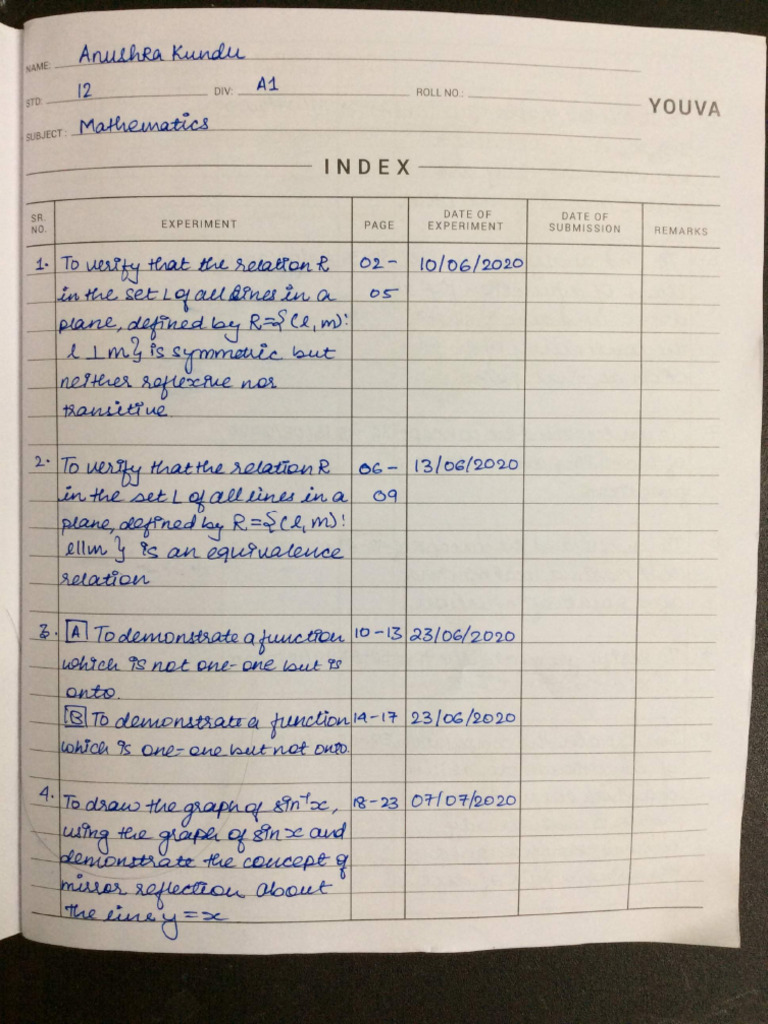 NAME: Anushka Kundu
STD: 12 DIV: A1 ROLL NO.:
YOUVA
SUBJECT: Mathematics
INDEX
SR. NO. EXPERIMENT PAGE DATE OF EXPERIMENT DATE OF SUBMISSION REMARKS
1. To verify that the relation R 02- 10/06/2020
in the set L of all lines in a 05
plane, defined by R={(l,m):
l ⊥ m} is symmetric but
neither reflexive nor
transitive
2. To verify that the relation R 06- 13/06/2020
in the set L of all lines in a 09
plane, defined by R={(l,m):
l||m } is an equivalence
relation
3. [A] To demonstrate a function 10-13 23/06/2020
which is not one-one but is
onto.
[B] To demonstrate a function 14-17 23/06/2020
which is one-one but not onto.
4. To draw the graph of sin⁻¹x, 18-23 07/07/2020
using the graph of sin x and
demonstrate the concept of
mirror reflection about
the line y=x